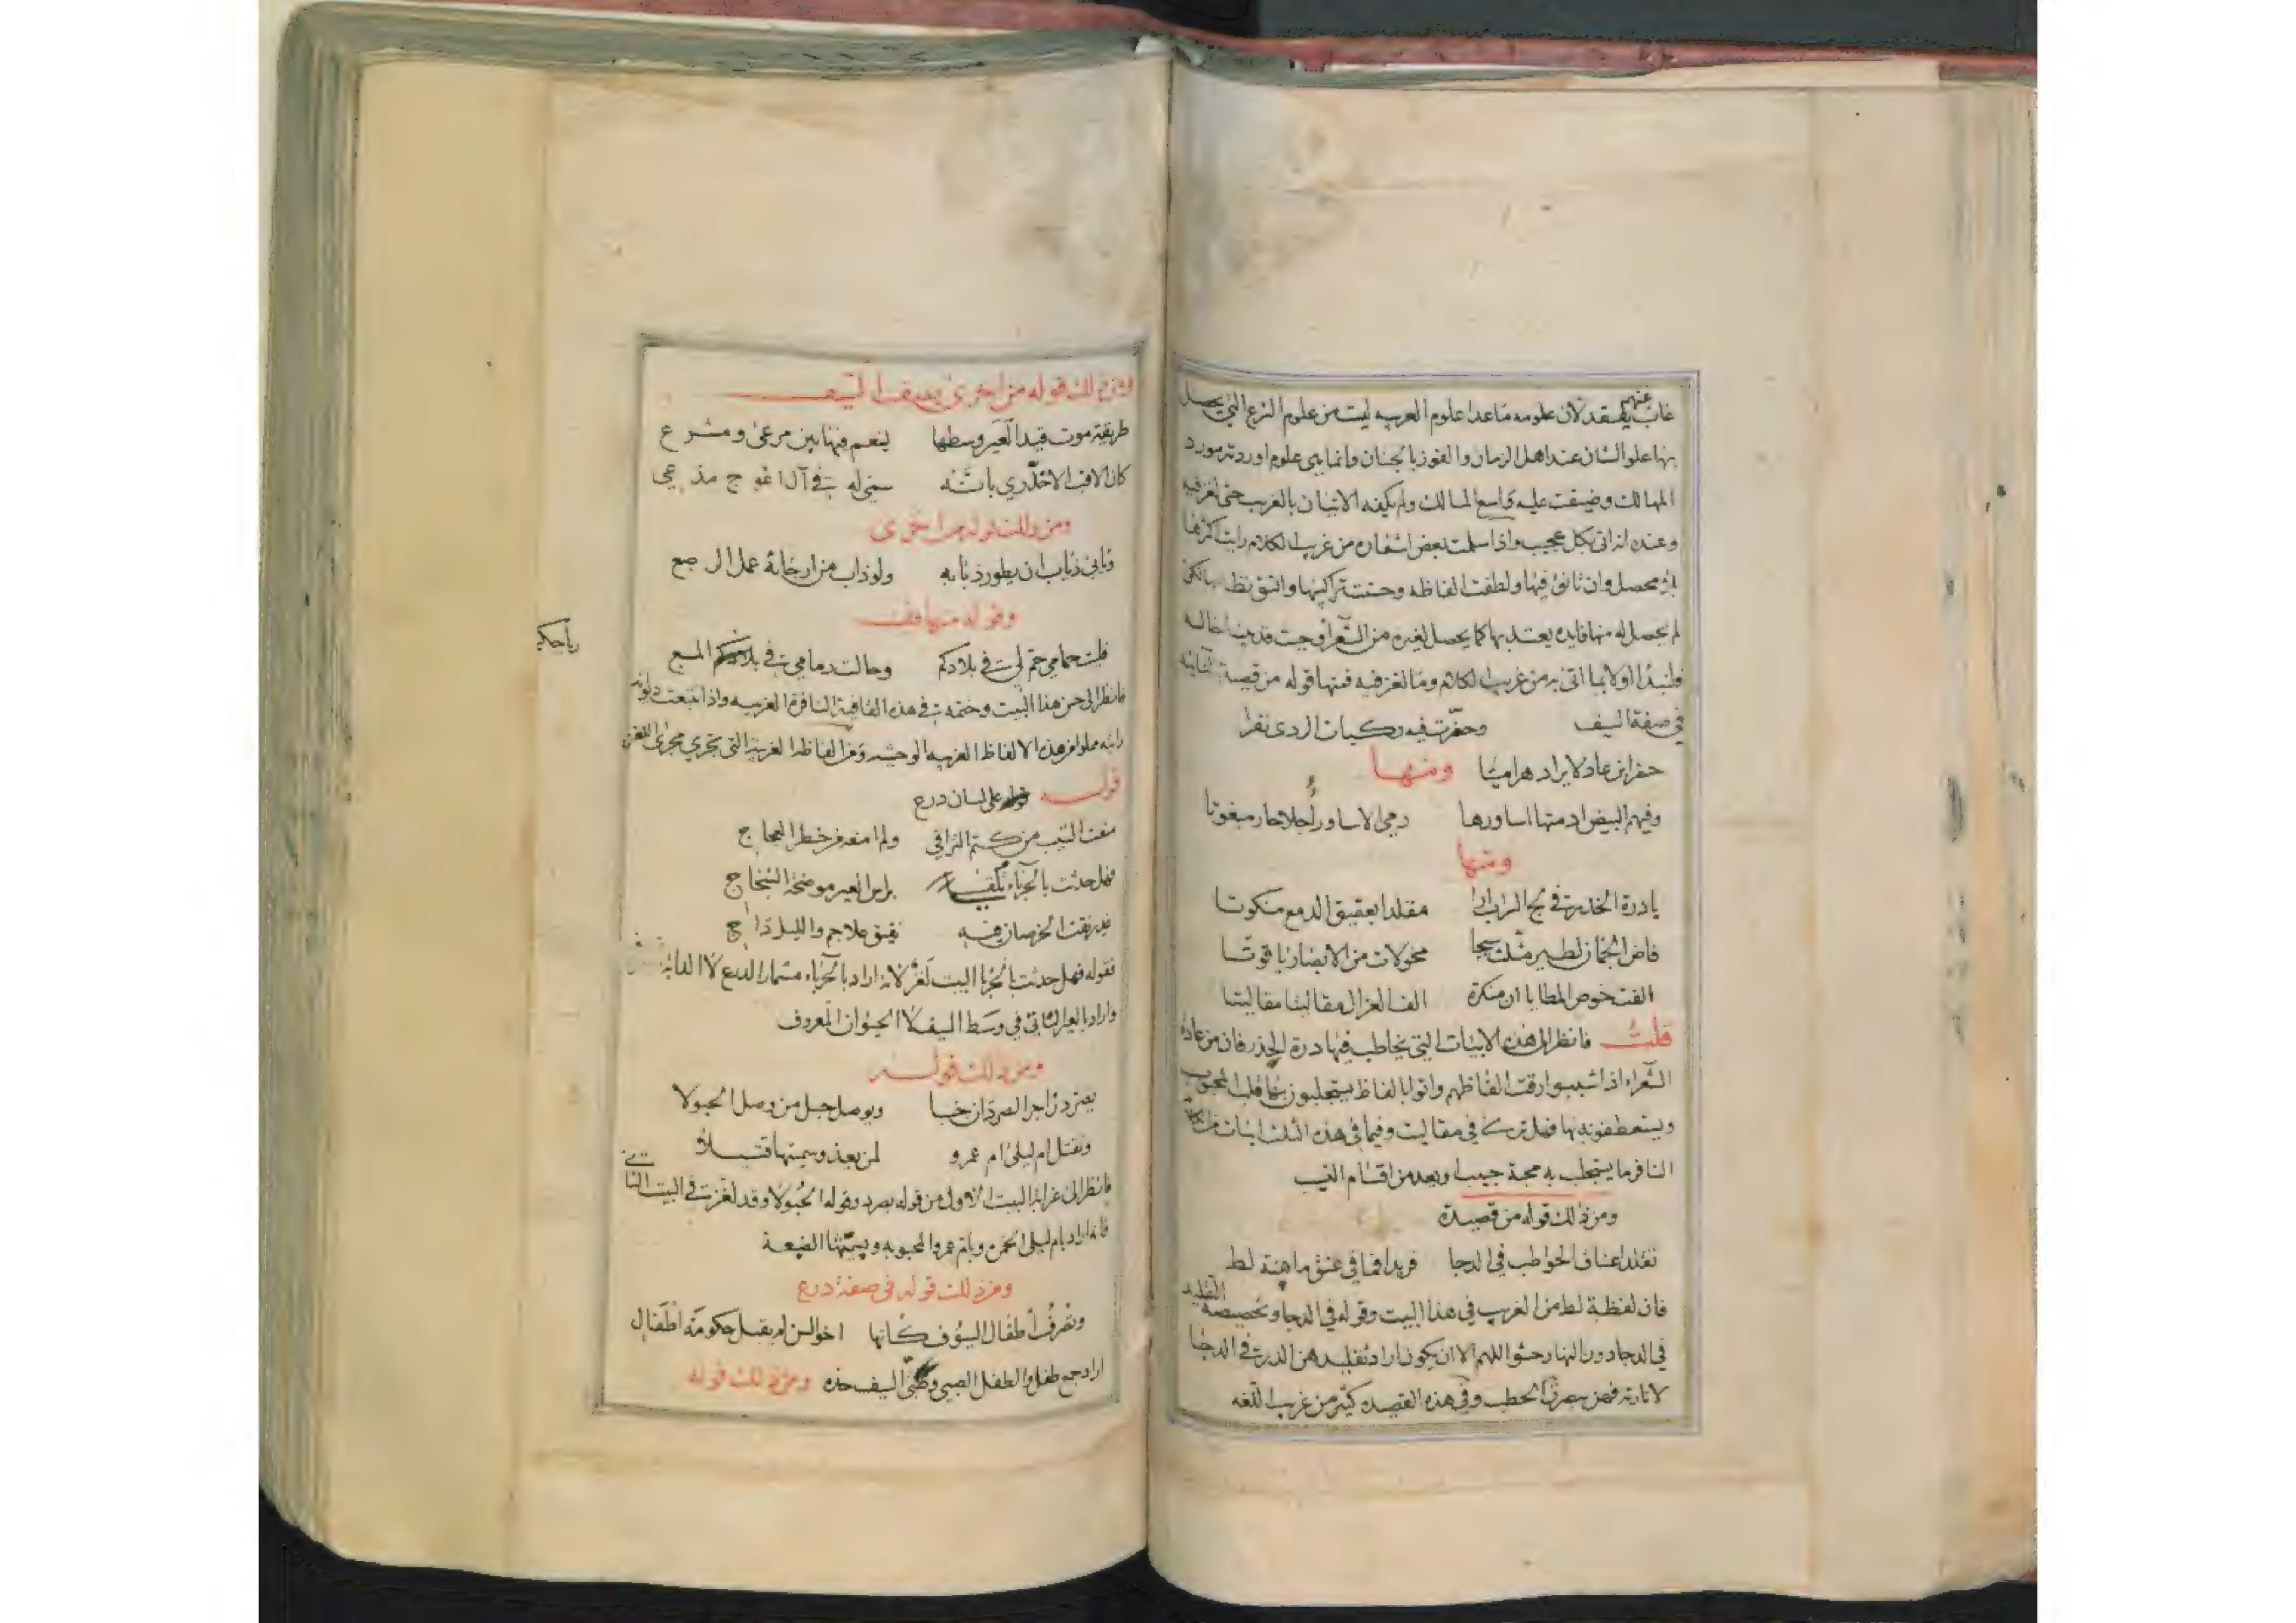 غاب عنهم يفتقد لان علومه ماعدا علوم العربيه ليست من علوم الشرع التي يحصل
بها علو الشان عند اهل الزمان والفوز بالجنان وانما هي علوم اوردته مورد
المهالك وضيقت عليه واسع المسالك ولم يكفه الاتيان بالغريب حتى لغز فيه
وعنده انه اتى بكل عجيب واذا سلمت بعض اشعاره من غريب الكلام رايت اكثرها
بلا محصل وان تانق فيها ولطفت الفاظه وحسنت تراكيبها واتسق نظامها لكن
لم يحصل له منها فايده يعتد بها كما يحصل لغيره من الشعرا وحيث قد بينا حاله
فلنبدا اولا بما اتى به من غريب الكلام وما لغز فيه فمنها قوله من قصيدة
في صفة السيف وحفرت فيه ركبات الردى نقرا
حفر ابن عاد لايراد هراميتا ومنها
وفيهم البيض ادمتها اساورها رمي الاساور اجلا حار مبغوتا
ومنها
يا درة الخدر في لج السراب ارا مقلدا بعقيق الدمع منكوتا
فاض الجمان لطير مثلت سبجا محولات من الابصار ياقوتا
الفت خوص المطايا ان منكرة الف الغزال مقاليتا مقاليتا
قلت فانظر الى هذه الابيات التي يخاطب فيها درة الخدر فان من عادة
الشعراء اذا شببوا رقت الفاظهم واتوا بالفاظ يستجلبون بها قلب المحبوب
ويستعطفونه بها فهل ترى في مقاليت وفيما في هذه الثلث ابيات من الكلام
النافر ما يستجلب به محبة حبيب او بعد من اقسام النسيب
ومن ذلك قوله من قصيدة
تقلد اعناق الحواطب في الدجا فريدا فما في عنق ماهنة لط
فان لفظة لط من الغريب في هذا البيت وقوله في الدجا وتخصيصه التقليد
في الدجا دون النهار حشو اللهم الا ان يكون اراد تقليدهن الدر في الدجا
لانارته فهن يبصرن الحطب وفي هذه القصيده كثير من غريب اللغه
ومن ذلك قوله من اخرى يصف السيف
طريقة موت قيد العير وسطها لينعم فيها بين مرعى ومشرع
كان الاقب الاخدري بانه سمي له في آل اعوج مذعي
ومن ذلك قوله من اخرى
وتابى ذباب ان يطور ذبابه ولو ذاب من ارجائه عمل الرصع
وقوله منها
فليت حمامي حم لي في بلادكم وحالت رمامي في بلادكم المسع
رياحكم
فانظر الى حسن هذا البيت وختمه في هذه القافية النافرة الغريبه واذا تتبعت ديوانه
رايته مملوا من هذه الالفاظ الغريبه الوحشيه ومن الفاظه الغريبة التي تجري مجرى اللغز
قوله على لسان درع
منعت الشيب من كتم التراقي ولم امنعه من خطر العجاج
فهل حدثت بالحرباء يلقى براس العير موضحة الشجاج
نقيق علاجم والليل داج
فقوله فهل حدثت بالحربا البيت لغز لانه اراد بالحرباء مسمار الدرع لا الدابة
واراد بالعير الناتي في وسط السيف لا الحيوان المعروف
ومن ذلك قوله
يصرد زاجر الصردان خبا ويوصل حبل من وصل الحبولا
وتقتل ام ليلى ام عمرو لمن بعد وسميتها قتيلا
فانظر الى غرابة البيت الاول من قوله يصرد وقوله الحبولا وقد لغز في البيت الثاني
فانه اراد بام ليلى الخمر وبام عمرو المحبوبه
ومن ذلك قوله في صفة درع
وتعرف اطفال السيوف كانها اخو السن لم يقبل حكومة اطفال
اراد جمع طفل والطفل الصبي وطبى السيف حده ومن ذلك قوله